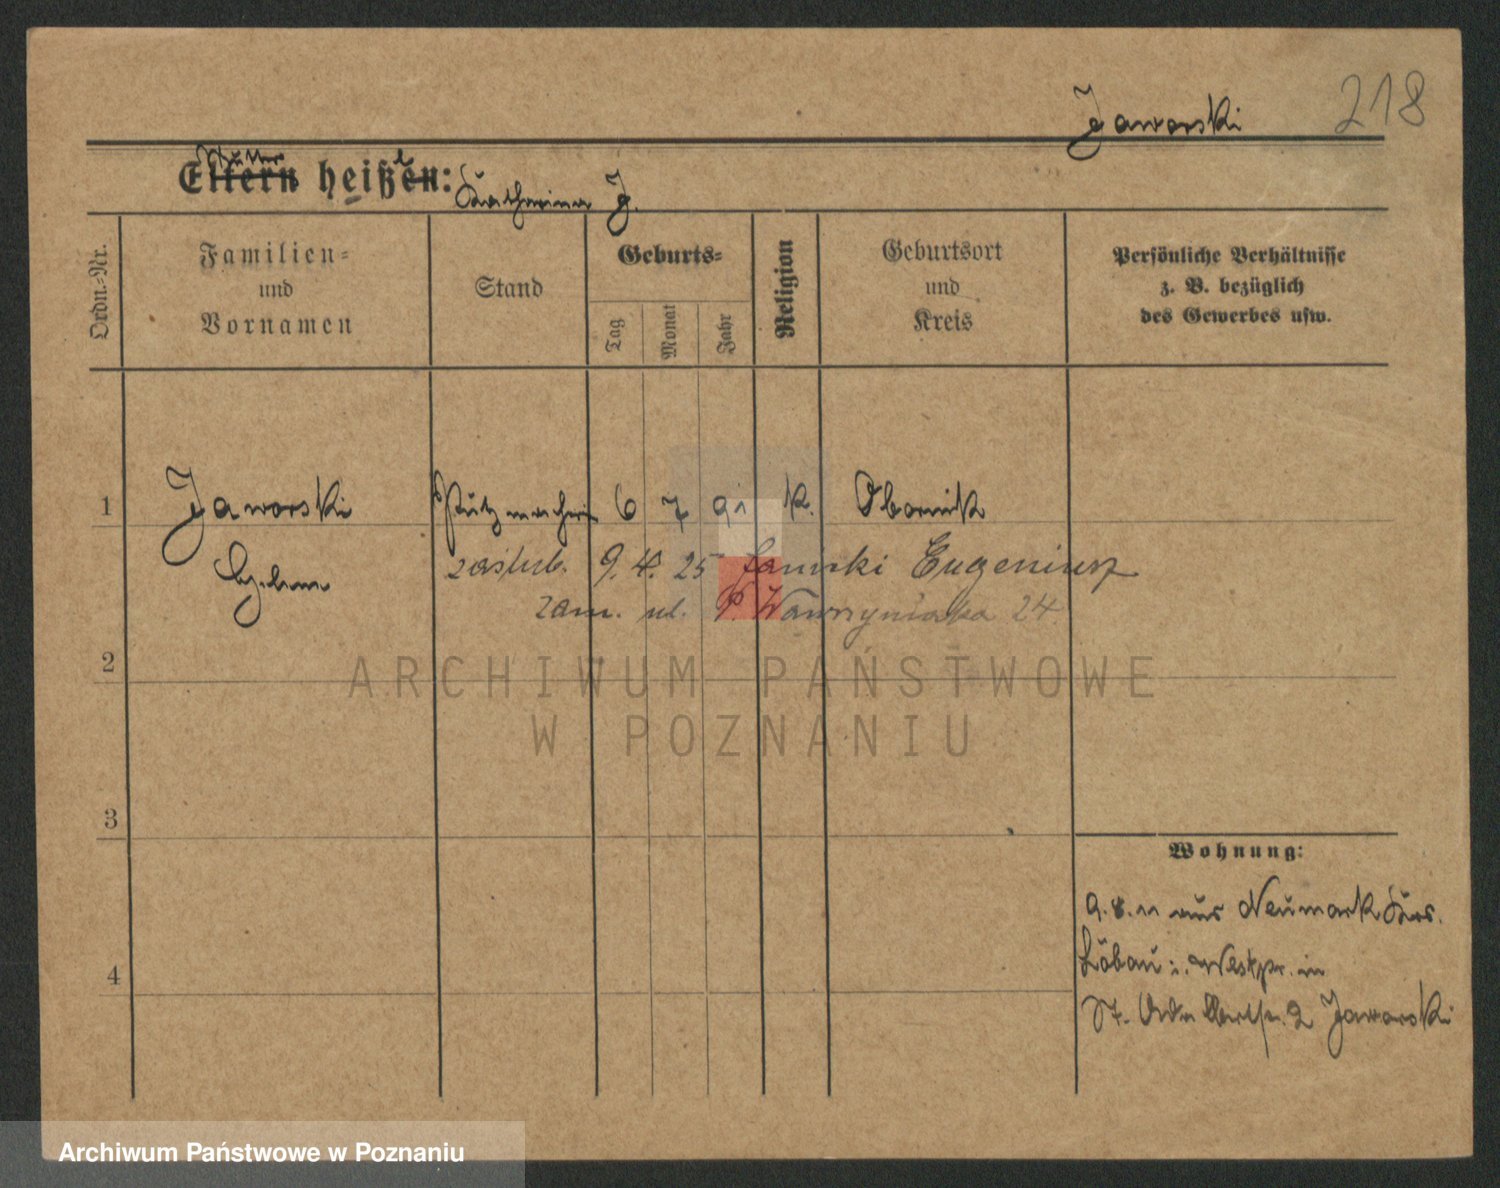 218
Jaworski
Mutter
Eltern heißen:
Katharina J.
Ordn.-Nr.
Familien-
und
Vornamen
Stand
Geburts-
Tag
Monat
Jahr
Religion
Geburtsort
und
Kreis
Persönliche Verhältnisse
z. B. bezüglich
des Gewerbes usw.
1 Jaworski Putzmacherin 6 7 91 k. Obornik
Helene
zaślub. 9. 4. 25 Eugeniusz
zam. ul. P. Wawrzyniaka 24
2
3
4
ARCHIWUM PAŃSTWOWE
W POZNANIU
Wohnung:
9. 8. 11 aus Neumark Krs.
Löbau i. Westpr. in
St. Adalbertstr. 2 Jaworski
Archiwum Państwowe w Poznaniu